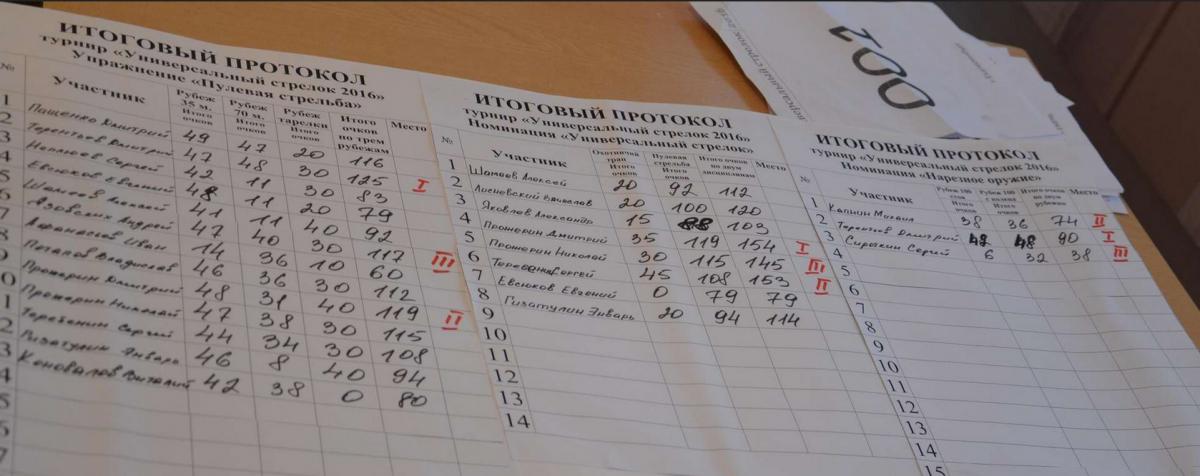 ИТОГОВЫЙ ПРОТОКОЛ
турнир «Универсальный стрелок 2016»
Упражнение «Пулевая стрельба»
№ Участник Рубеж 35 м. Итого очков Рубеж 70 м. Итого очков Рубеж тарелки Итого очков Итого очков по трем рубежам Место
1 Пащенко Дмитрий 49 47 20 116
2 Терентьев Дмитрий 47 48 30 125 I
3 Сергей 42 11 30 83
4 Евсюков Евгений 48 11 20 79
5 Шамаев Алексей 41 11 40 92
6 Азовских Андрей 47 40 30 117 III
7 Афанасьев Иван 14 36 10 60
8 Потапов Владислав 46 36 30 112
9 Прожерин Дмитрий 48 31 40 119 II
0 Прожерин Николай 47 38 30 115
1 Теребенин Сергей 44 34 30 108
2 Гизатулин Январь 46 8 40 94
3 Коновалов Виталий 42 38 0 80
4
5
ИТОГОВЫЙ ПРОТОКОЛ
турнир «Универсальный стрелок 2016»
Номинация «Универсальный стрелок»
№ Участник Охотничий трап Итого очков Пулевая стрельба Итого очков Итого очков по двум дисциплинам Место
1 Шамаев Алексей 20 92 112
2 Лисневский 20 100 120
3 Яковлев Александр 15 88 103
4 Прожерин Дмитрий 35 119 154 I
5 Прожерин Николай 30 115 145 III
6 Теребенин Сергей 45 108 153 II
7 Евсюков Евгений 0 79 79
8 Гизатулин Январь 20 94 114
9
10
11
12
13
14
ИТОГОВЫЙ ПРОТОКОЛ
турнир «Универсальный стрелок 2016»
Номинация «Нарезное оружие»
№ Участник Рубеж 100 стоя Итого очков Рубеж 100 с колена Итого очков Итого очков по двум рубежам Место
1 Капнин Михаил 38 36 74 II
2 Терентьев Дмитрий 42 48 90 I
3 Сирыкин Сергей 6 32 38 III
4
5
6
7
8
9
10
11
12
13
14
15
001